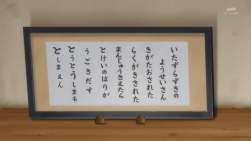 いたずらずきの
ようせいさん
きがたおされた
らくがきされた
まんじゅうきえたら
とけいのはりが
うごきだす
とうとうしまも
としまえん